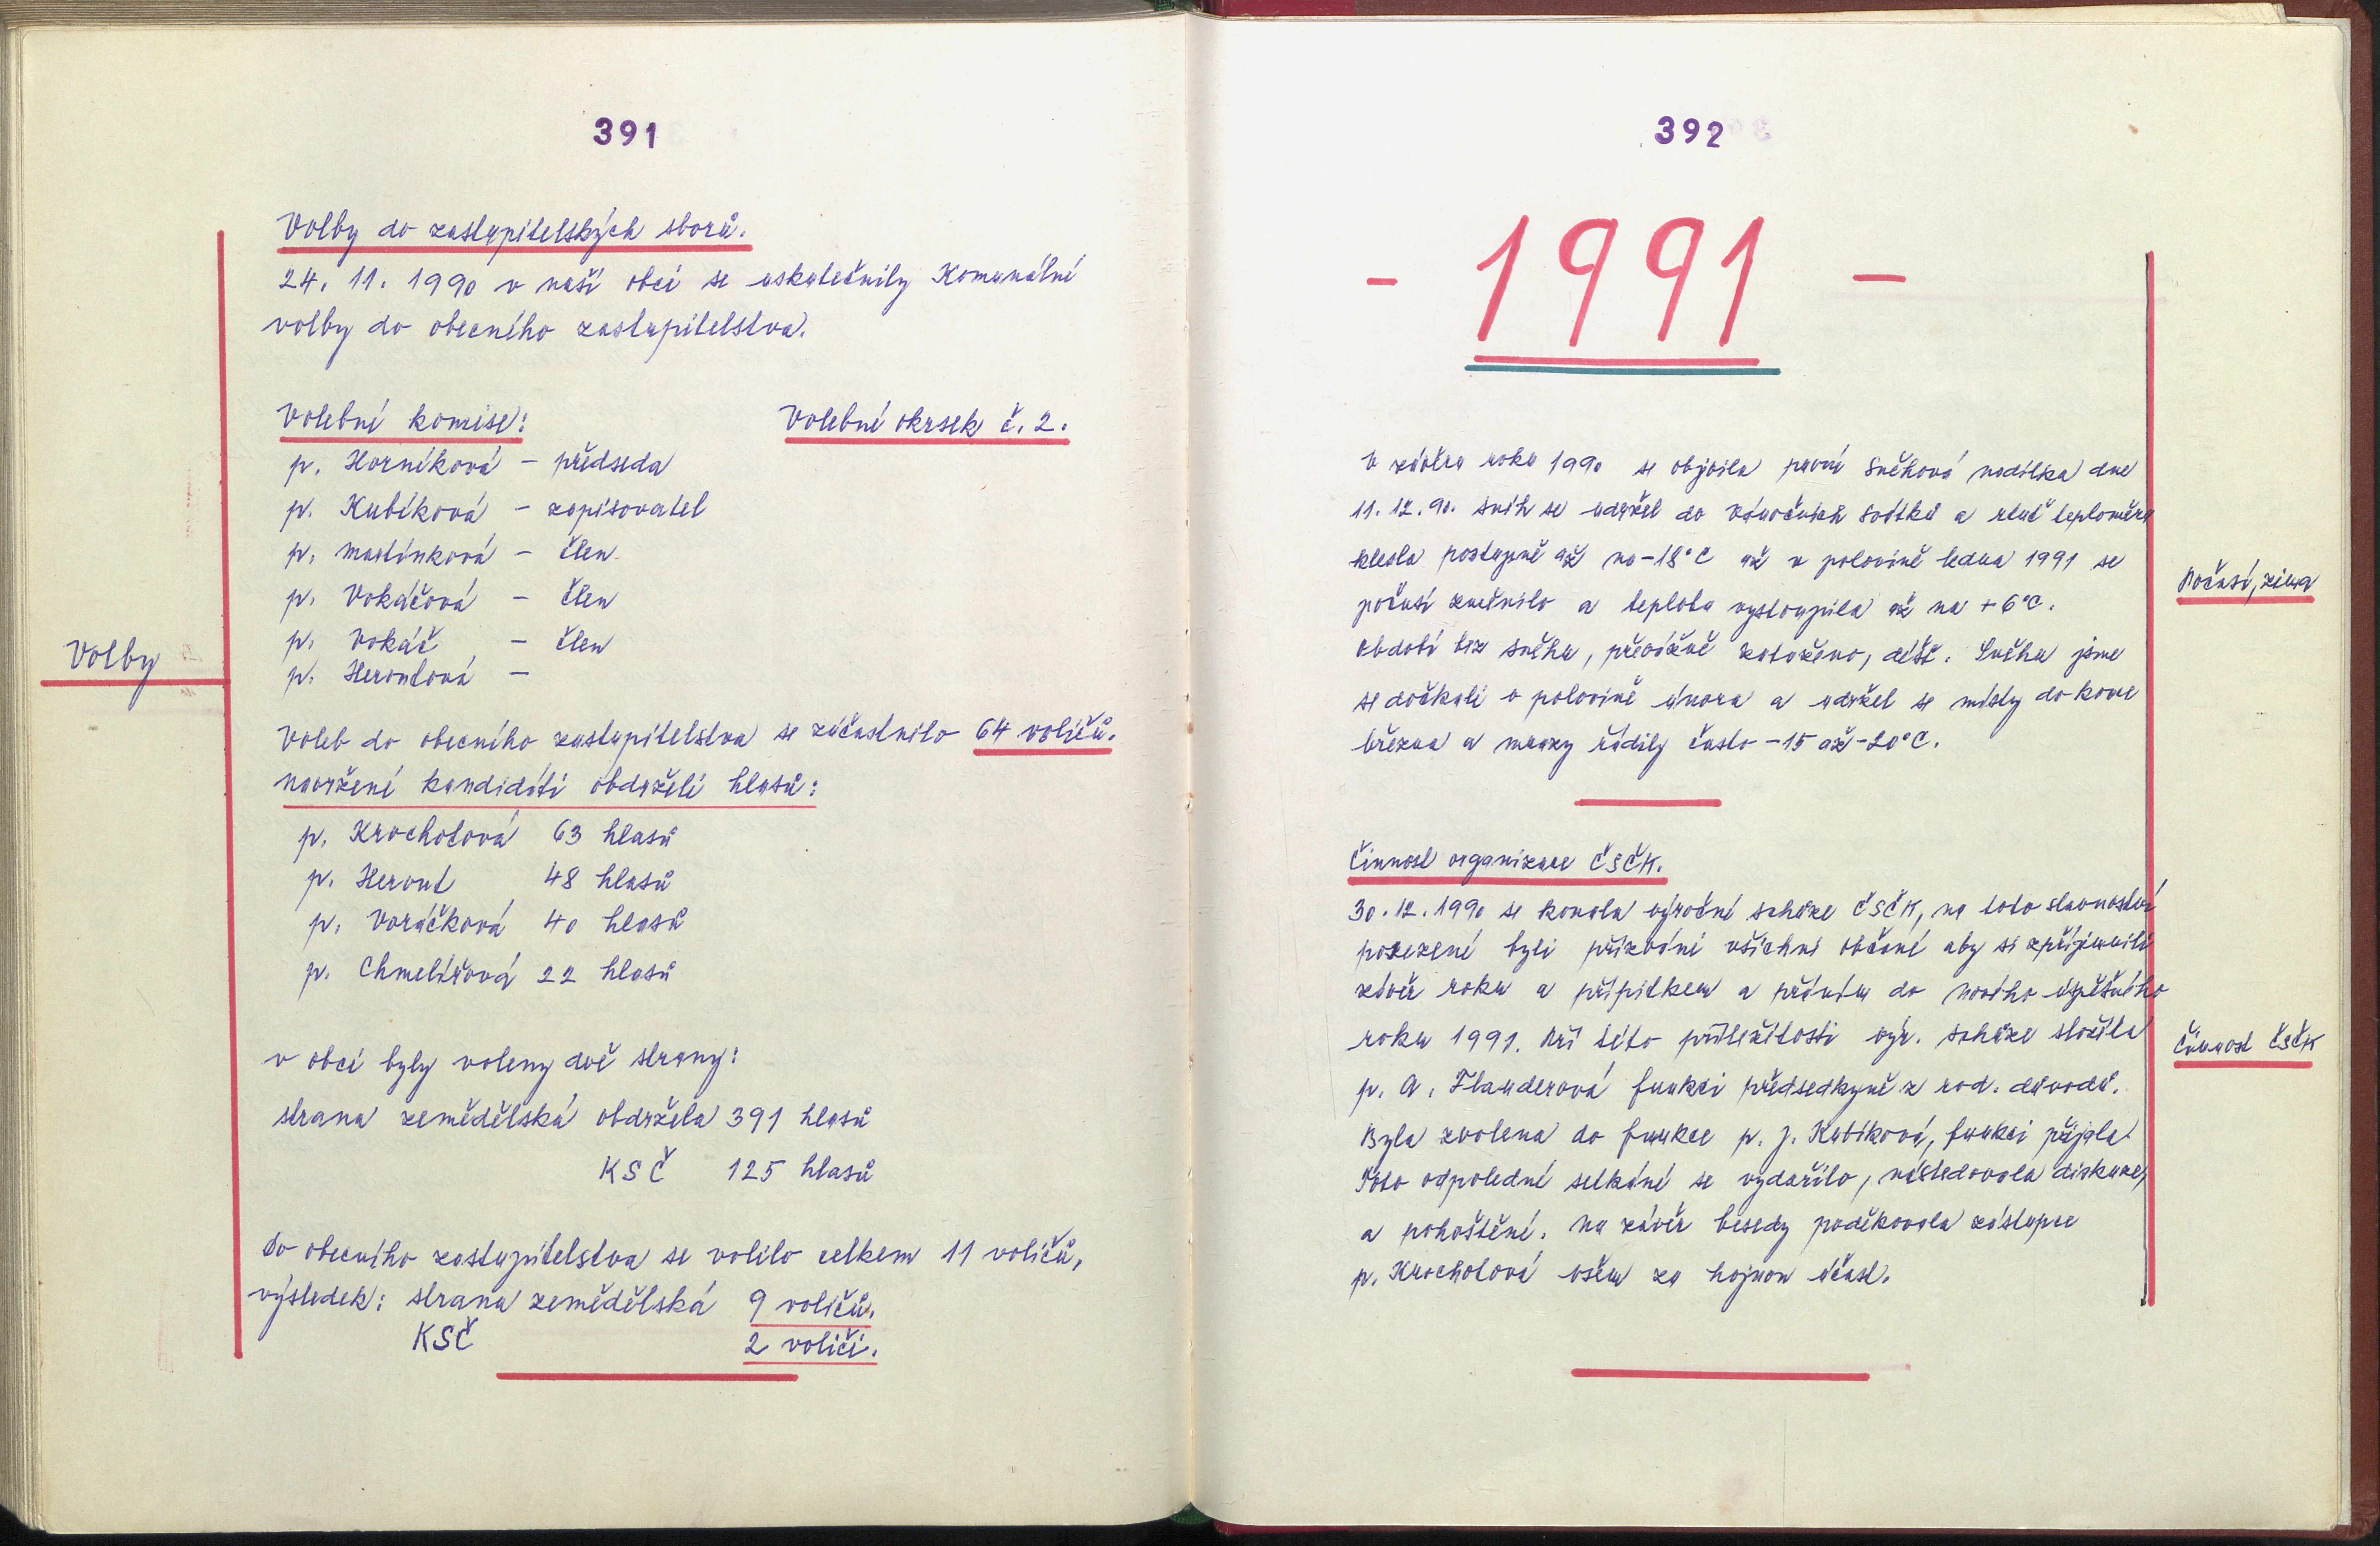 391
Volby do zastupitelských sborů.
24. 11. 1990 v naší obci se uskutečnily Komunální
volby do obecního zastupitelstva.
Volební komise: Volební okrsek č. 2.
p. Horníková - předseda
p. Kubíková - zapisovatel
p. Martínková - člen
p. Vokáčová - člen
p. Vokáč - člen
p. Herontová -
Volby
Voleb do obecního zastupitelstva se zúčastnilo 64 voličů.
Navržení kandidáti obdrželi hlasů:
p. Krochotová 63 hlasů
p. Heront 48 hlasů
p. Voráčková 40 hlasů
p. Chmelířová 22 hlasů
v obci byly voleny dvě strany:
strana zemědělská obdržela 391 hlasů
KSČ 125 hlasů
Do obecního zastupitelstva se volilo celkem 11 voličů,
výsledek: strana zemědělská 9 voličů.
KSČ 2 voliči.
392
- 1991 -
V závěru roku 1990 se objevila první sněhová nadílka dne
11.12.90. sníh se udržel do vánočních svátků a rtuť teploměru
klesla postupně až na -18°C až v polovině ledna 1991 se
počasí změnilo a teplota vystoupila až na +6°C.
Období bez sněhu, převážně zataženo, déšť. Sněhu jsme
se dočkali v polovině února a udržel se místy do konce
března a mrazy řádily často -15 až -20°C.
Počasí, zima
Činnost organizace ČSČK.
30.12.1990 se konala výroční schůze ČSČK, na toto slavnostní
posezení byli přizváni všichni občané aby si zpříjemnili
závěr roku a přípitkem a přáním do nového úspěšného
roku 1991. Při této příležitosti výr. schůze složila
p. A. Flanderová funkci předsedkyně z rod. důvodů.
Byla zvolena do funkce p. J. Kubíková, funkci přijala.
Toto odpolední setkání se vydařilo, následovala diskuze,
a pohoštění. Na závěr besedy poděkovala zástupce
p. Krochotová všem za hojnou účast.
Činnost ČSČK